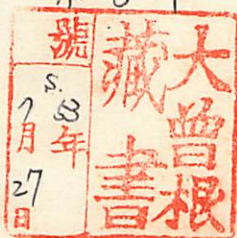 大曾根
藏書
號
S.53年
7月
27日